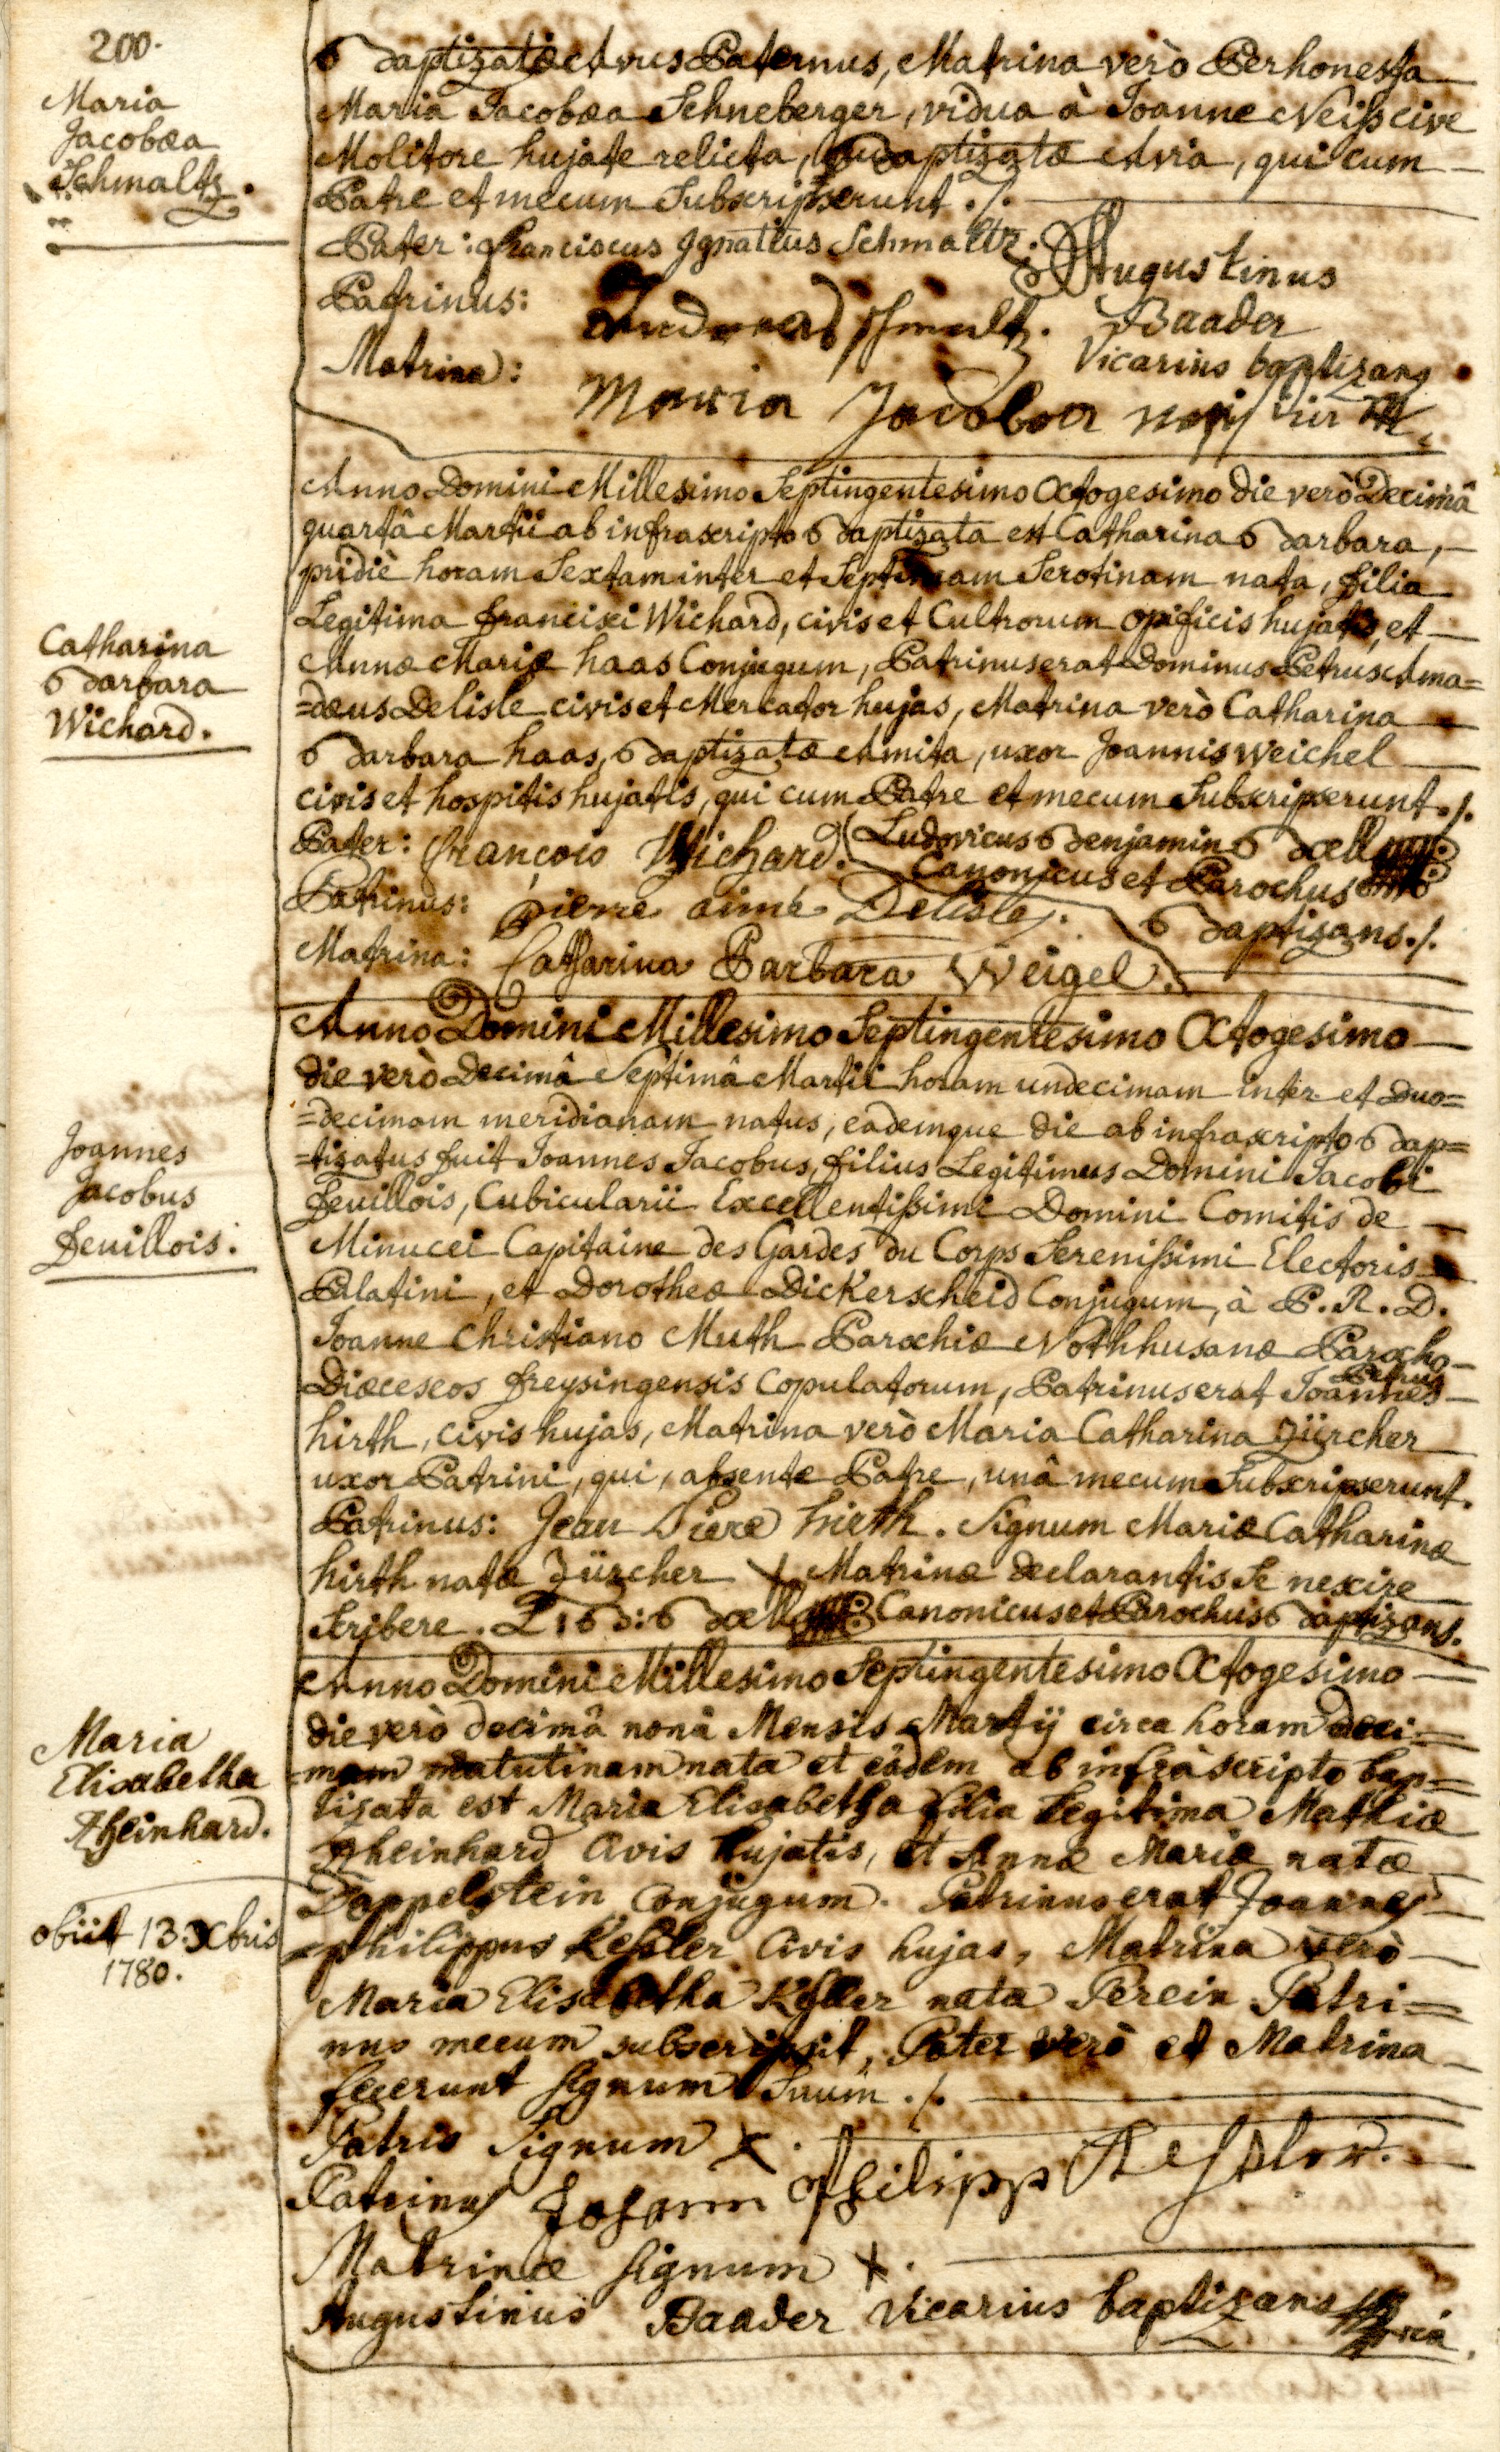 200.
Maria
Jacobæa
Schmaltz.
Baptizatæ Avus Paternus, Matrina verò Perhonesta
Maria Jacobæa Schneberger, vidua à Joanne Neiß cive
Molitore hujate relicta, Baptizatæ Avia, qui cum
Patre et mecum Subscripserunt ./.
Pater: Franciscus Ignatius Schmaltz.
Augustinus
Baader
Vicarius baptizans
Patrinus: Andreas schmaltz.
Matrina: Maria Jacobea
Anno Domini Millesimo Septingentesimo Octogesimo die verò Decimâ
quartâ Martii ab infrascripto Baptizata est Catharina Barbara,
pridiè horam Sextam inter et Septimam Serotinam nata, filia
Legitima Francisci Wichard, civis et Cultrorum opificis hujatis, et
Catharina
Barbara
Wichard.
Annæ Mariæ Haas Conjugum, Patrinus erat Dominus Petrus Ama=
=dæus Delisle civis et Mercator hujas, Matrina verò Catharina
Barbara Haas, Baptizatæ Amita, uxor Joannis Weichel
civis et hospitis hujatis, qui cum Patre et mecum Subscripserunt./.
Pater: François Wichard.
Ludovicus Benjamin Bœll
Canonicus et Parochus
Baptizans./.
Patrinus: pierre aimé Delisle.
Matrina: Catharina Barbara Weigel.
Anno Domini Millesimo Septingentesimo Octogesimo
die verò Decimâ Septimâ Martii horam undecimam inter et Duo=
=decimam meridianam natus, eademque die ab infrascripto Bap=
=tizatus fuit Joannes Jacobus, filius Legitimus Domini Jacobi
Joannes
Jacobus
Feuillois.
Feuillois, Cubicularii Excellentißimi Domini Comitis de
Minucci Capitaine des Gardes du Corps Serenißimi Electoris
Palatini, et Dorotheæ Dickerscheid Conjugum, à P. R. D.
Joanne Christiano Muth Parochiæ Nothhusanæ Parocho
Diœceseos Freysingensis Copulatorum, Patrinus erat Joannes Petrus
Hirth, civis hujas, Matrina verò Maria Catharina Zürcher
uxor Patrini, qui, absente Patre, unâ mecum Subscripserunt.
Patrinus: Jean Piere hirth. Signum Mariæ Catharinæ
Hirth natæ Zürcher X Matrinæ declarantis Se nescire
Scribere. L: B: Bœll Canonicus et Parochus Baptizans.
Anno Domini Millesimo Septingentesimo Octogesimo
die verò decimâ nonâ Mensis Martÿ circa horam deci=
=mam matutinam nata et eâdem ab infrascripto bap=
tizata est Maria Elisabetha filia Legitima Mathiæ
Maria
Elisabetha
Rheinhard.
Rheinhard Civis hujatis, et Annæ Mariæ natæ
Doppelstein conjugum. Patrinus erat Joannes
philippus Keßler Civis hujas, Matrina verò
obiit 13. Xbris
1780.
Maria Elisabetha Keßler nata Perein. Patri=
nus mecum subscripsit, Pater verò et Matrina
fecerunt signum Suum ./.
Patris Signum X.
Patrinus Johann Philipp Keßler.
Matrinæ signum X.
Augustinus Baader Vicarius baptizans